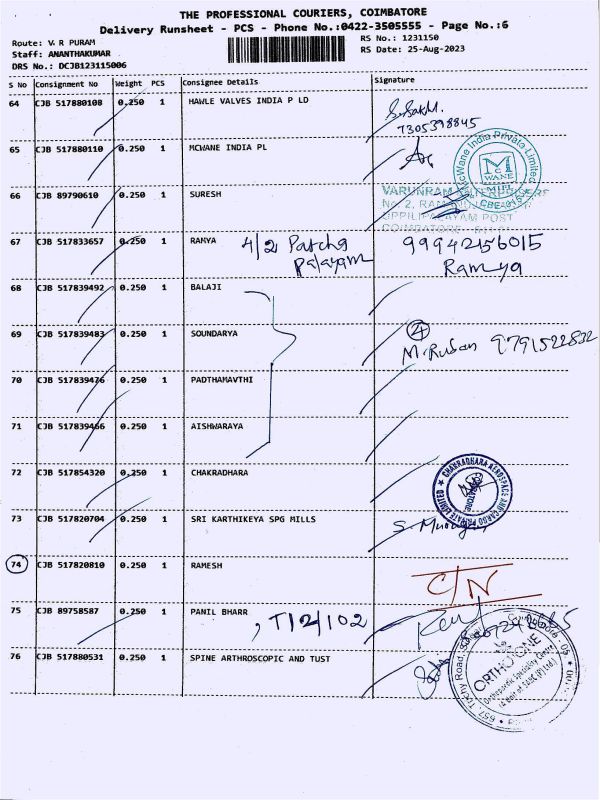 THE PROFESSIONAL COURIERS, COIMBATORE
Delivery Runsheet - PCS - Phone No.:0422-3505555 - Page No.:6
Route: V R PURAM
RS No.: 1231150
Staff: ANANTHAKUMAR
RS Date: 25-Aug-2023
DRS No.: DCJB123115006
S No Consignment No Weight PCS Consignee Details Signature
64 CJB 517880108 0.250 1 HAWLE VALVES INDIA P LD
7305398845
65 CJB 517880110 0.250 1 MCWANE INDIA PL
McWane India Private Limited
McWANE
66 CJB 89790610 0.250 1 SURESH
VARUNRAM ENTERPRISERS
No. 2, RAM
UPPILIPALAYAM POST
COIMBATORE
67 CJB 517833657 0.250 1 RAMYA 4/2 Patcha Palayam 99942156015
Ramya
68 CJB 517839492 0.250 1 BALAJI
69 CJB 517839483 0.250 1 SOUNDARYA
4
M. Ruban 9791522832
70 CJB 517839476 0.250 1 PADTHAMAVTHI
71 CJB 517839466 0.250 1 AISHWARAYA
72 CJB 517854320 0.250 1 CHAKRADHARA
CHAKRADHARA AEROSPACE AND CARGO PRIVATE LIMITED
73 CJB 517820704 0.250 1 SRI KARTHIKEYA SPG MILLS
74 CJB 517820810 0.250 1 RAMESH
C/N
75 CJB 89758587 0.250 1 PANIL BHARR , T12/102
76 CJB 517880531 0.250 1 SPINE ARTHROSCOPIC AND TUST
ORTHO ONE
Orthopaedic Speciality Centre
657, Trichy Road,